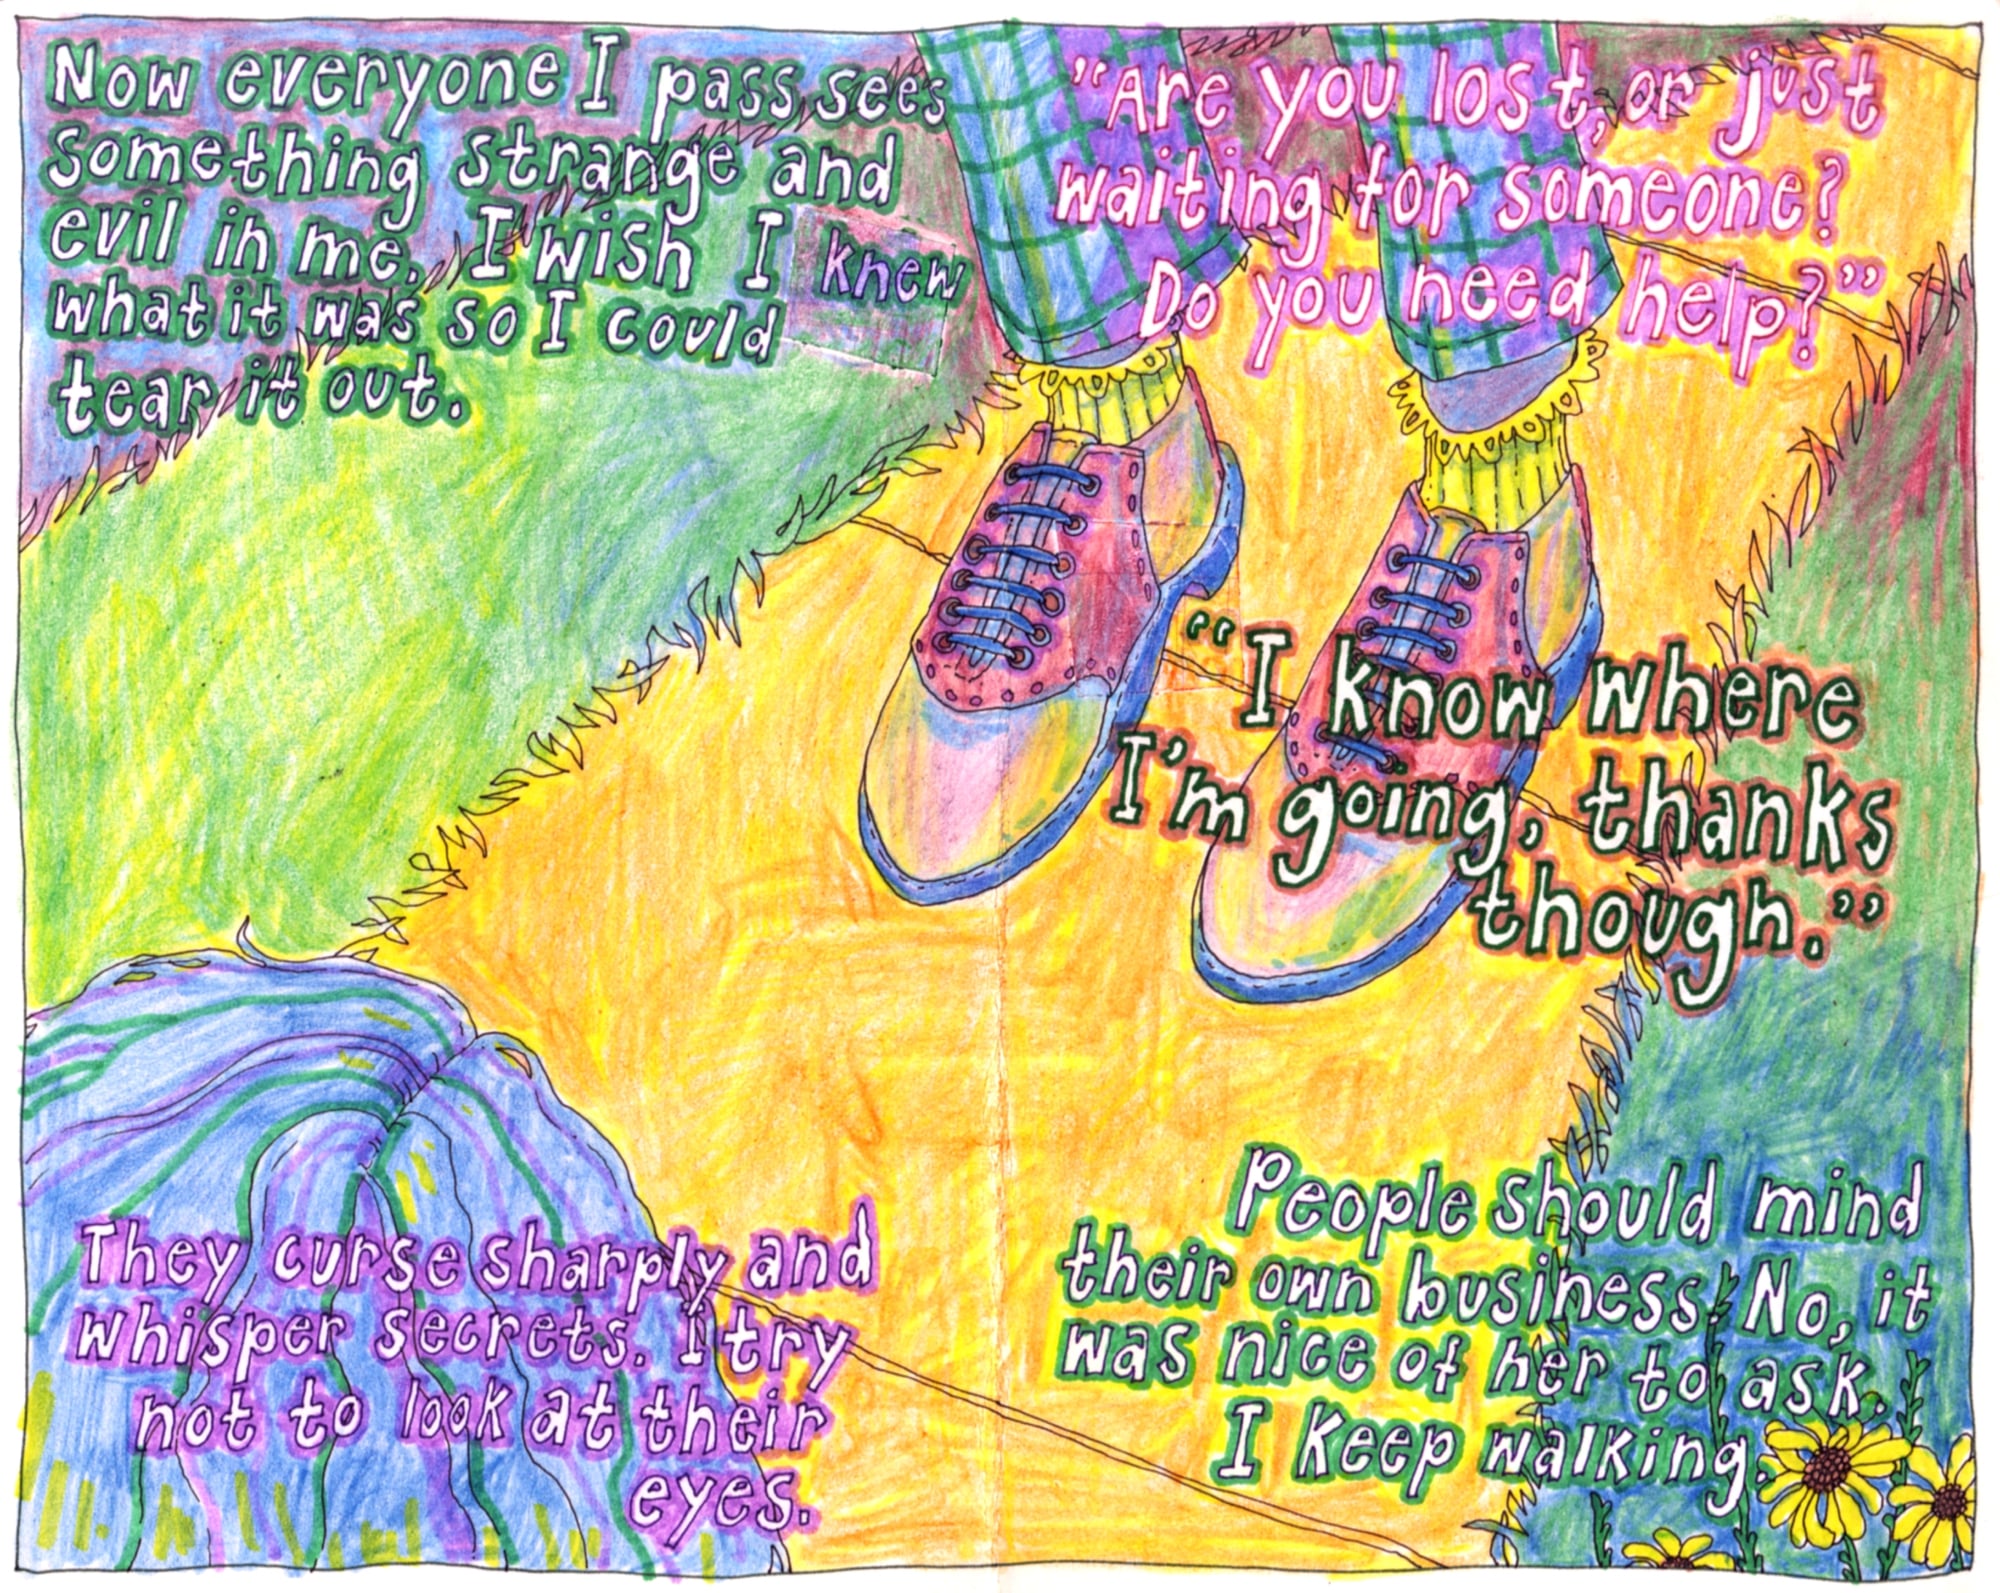 Now everyone I pass sees
something strange and
evil in me. I wish I knew
what it was so I could
tear it out.
"Are you lost, or just
waiting for someone?
Do you need help?"
"I know where
I'm going, thanks
though."
They curse sharply and
whisper secrets. I try
not to look at their
eyes.
People should mind
their own business. No, it
was nice of her to ask.
I keep walking.